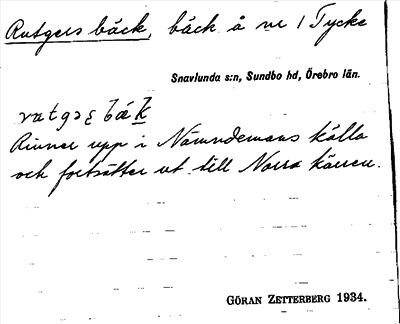 Rutgers bäck, bäck å nr 1 Tycke
Snavlunda s:n, Sundbo hd, Örebro län.
Rinner upp i Nämndemans källa
och fortsätter ut till Norra kärren.
GÖRAN ZETTERBERG 1934.